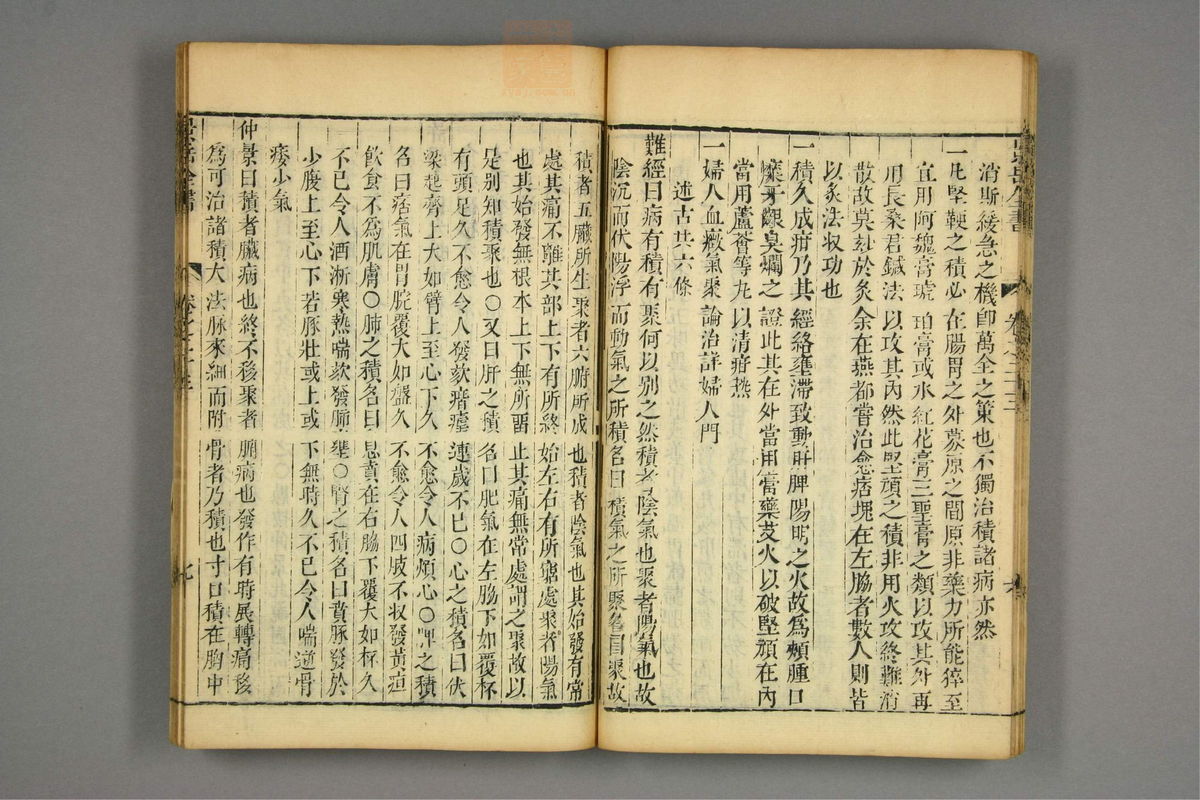 景岳全書
卷之二十三
消斯緩急之機卽萬全之策也不獨治積諸病亦然
一凡堅鞕之積必在腸胃之外募原之間原非藥力所能猝至
宜用阿魏膏琥珀膏或水紅花膏三聖膏之類以攻其外再
用長桑君鍼法以攻其內然此堅頑之積非用火攻終難消
散故莫玅於灸余在燕都嘗治愈痞塊在左脇者數人則皆
以炙法収功也
一積久成疳乃其經絡壅滯致動肝脾陽明之火故爲頰腫口
糜牙齦臭爛之證此其在外當用膏藥艾火以破堅頑在內
當用蘆薈等丸以清疳熱
一婦人血癥氣聚論治詳婦人門
述古共六條
難經曰病有積有聚何以別之然積者陰氣也聚者陽氣也故
陰沉而伏陽浮而動氣之所積名曰積氣之所聚名曰聚故
積者五臟所生聚者六腑所成也積者陰氣也其始發有常
處其痛不離其部上下有所終始左右有所窮處聚者陽氣
也其始發無根本上下無所畱止其痛無常處謂之聚故以
是別知積聚也○又曰肝之積名曰肥氣在左脇下如覆杯
有頭足久不愈令人發欬瘖瘧連歲不已○心之積名曰伏
梁起齊上大如臂上至心下久不愈令人病煩心○脾之積
名曰痞氣在胃脘覆大如盤久不愈令人四肢不収發黃疸
飲食不爲肌膚○肺之積名曰息賁在右脇下覆大如杯久
不已令人洒淅寒熱喘欬發肺壅○腎之積名曰賁豚發於
少腹上至心下若豚壯或上或下無時久不已令人喘逆骨
痿少氣
仲景曰積者臟病也終不移聚者腑病也發作有時展轉痛移
爲可治諸積大法脉來細而附骨者乃積也寸口積在胸中
景岳全書
卷之二十三